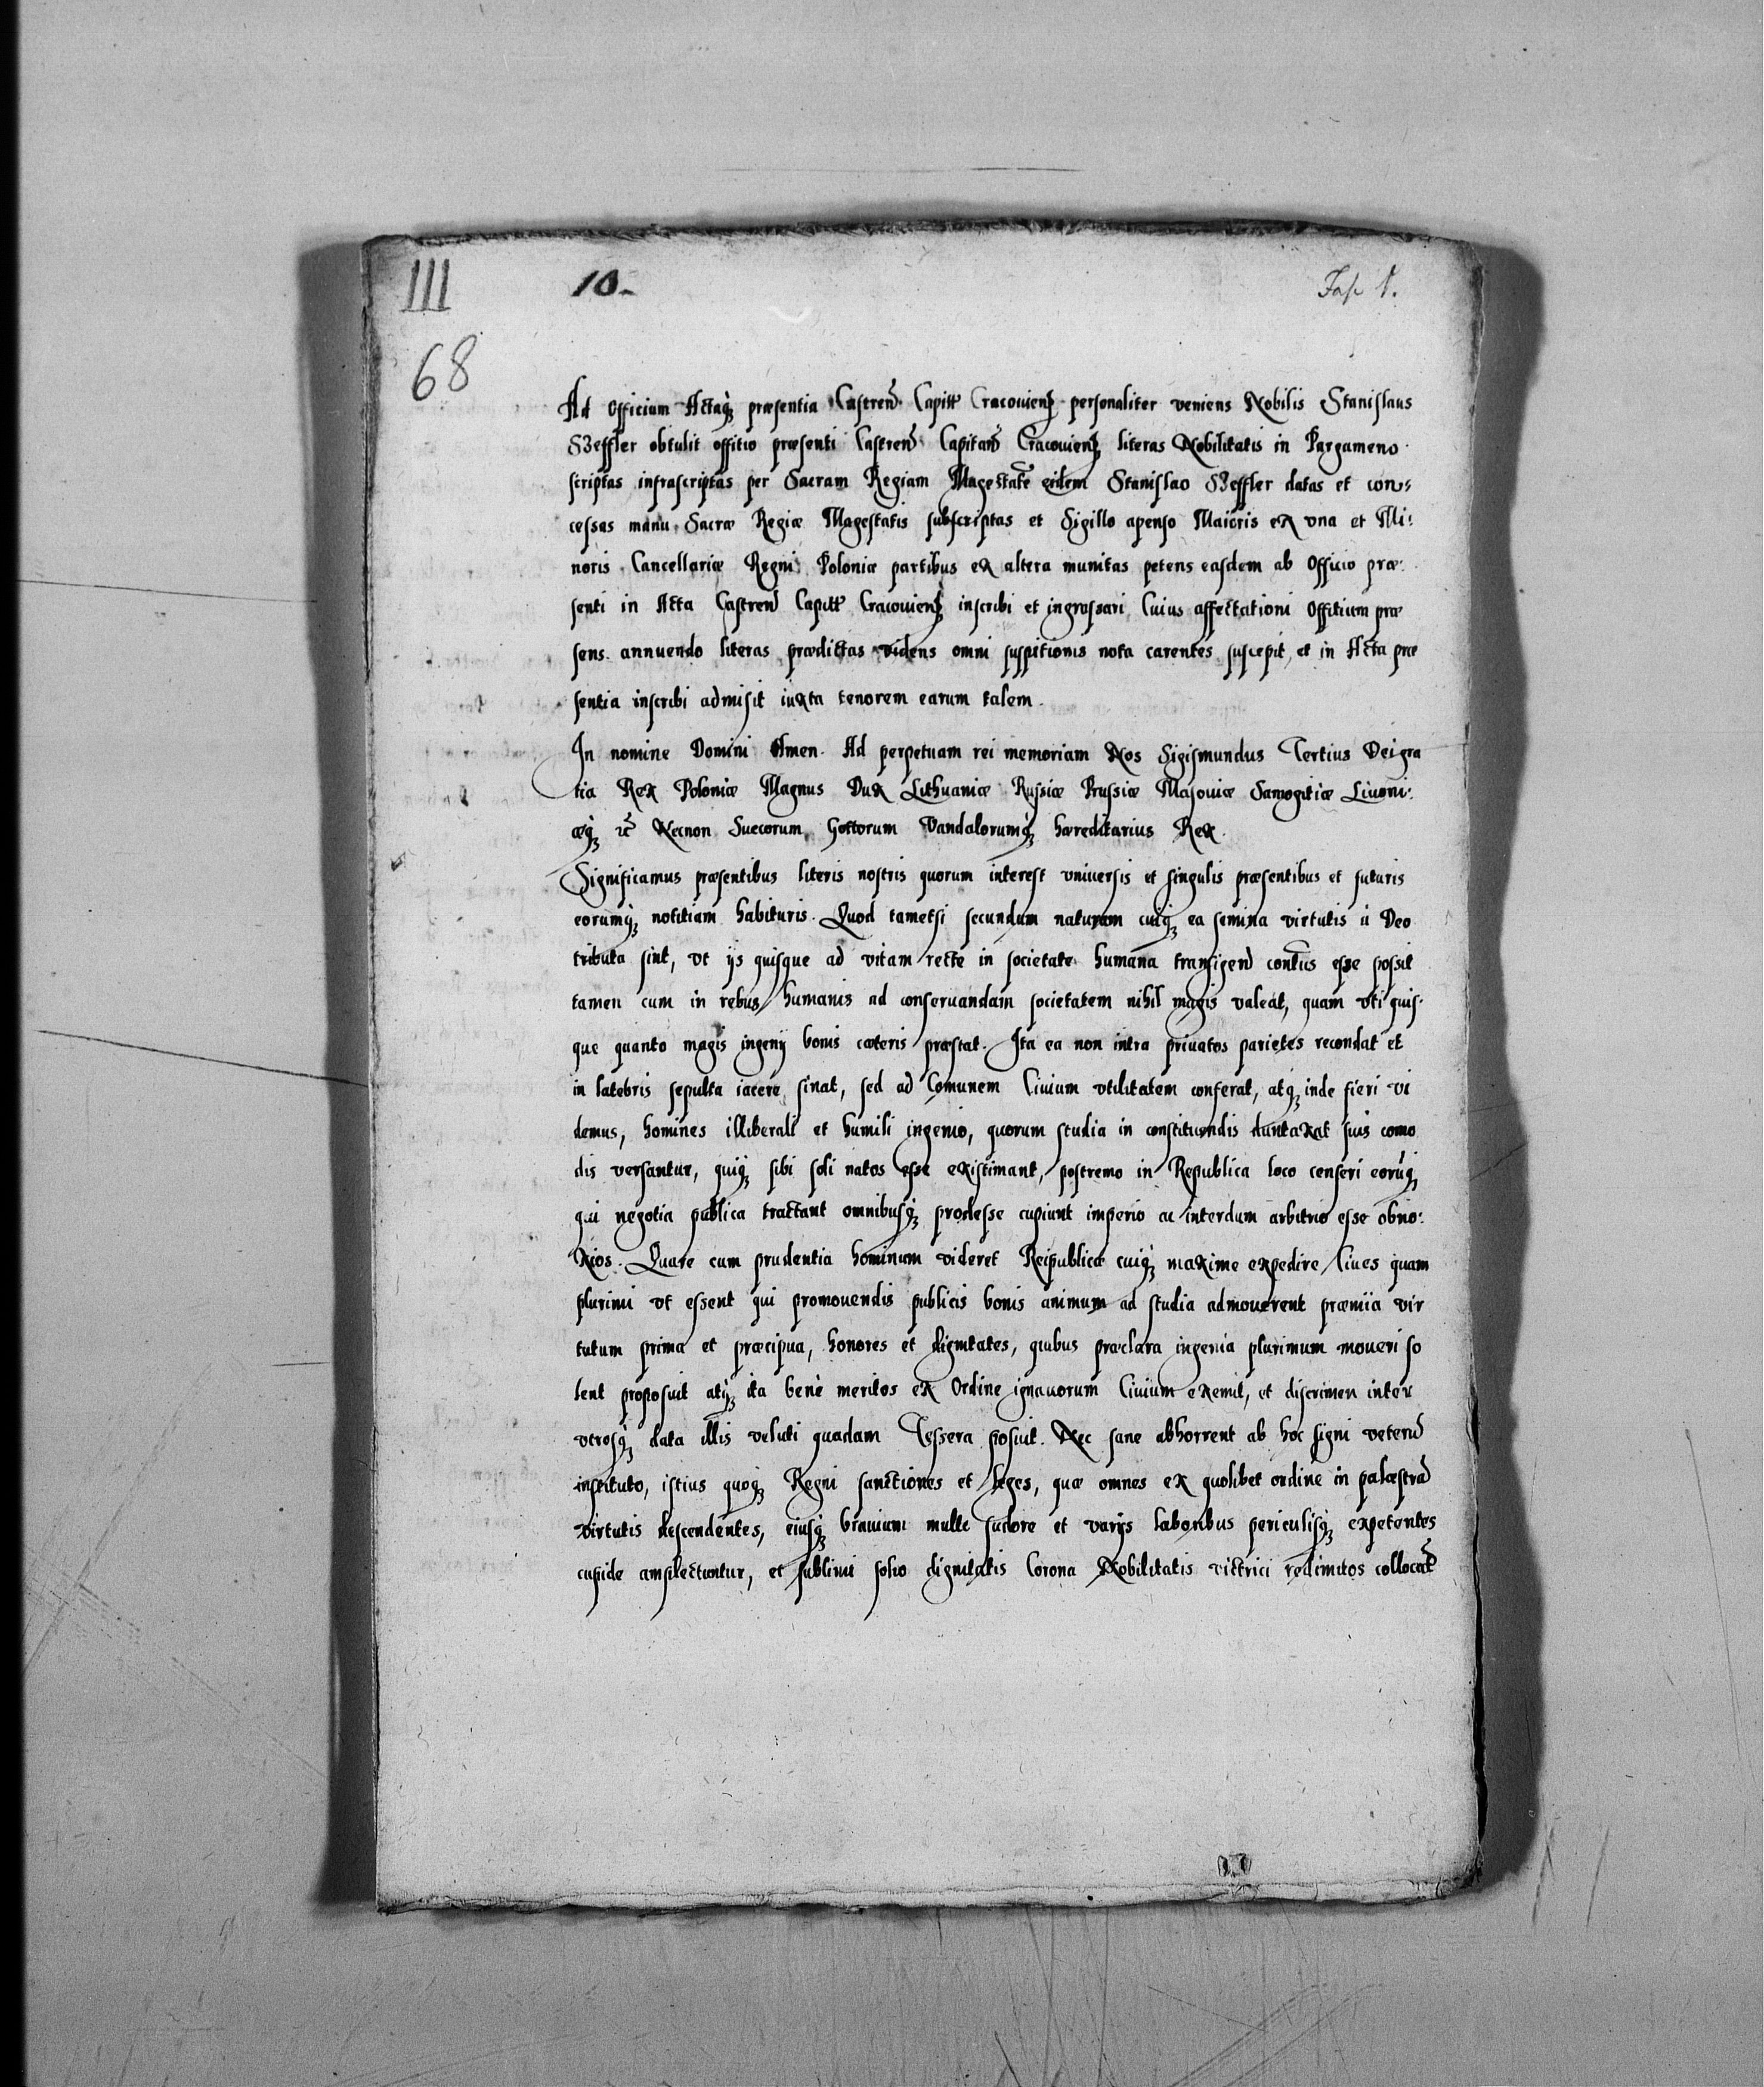 III
10.
Fasc 1.
68
Ad Officium Actaq; præsentia Castren Capitt Cracouien personaliter veniens Nobilis Stanislaus
Szeffler obtulit offitio præsenti Castren Capitan Cracouien literas Nobilitatis in Pargameno
scriptas infrascriptas per Sacram Regiam Magestate eidem Stanislao Szeffler datas et con
cessas manu Sacræ Regiæ Magestatis subscriptas et Sigillo apenso Maioris ex vna et Mi:
noris Cancellariæ Regni Poloniæ partibus ex altera munitas petens easdem ab Officio præ:
senti in Acta Castren Capitt Cracouien inscribi et ingrossari Cuius affectationi Offitium præ
sens annuendo literas prædictas videns omni suspitionis nota carentes suscepit, et in Acta præ
sentia inscribi admisit iuxta tenorem earum talem.
In nomine Domini Amen. Ad perpetuam rei memoriam Nos Sigismundus Tertius Dei gra
tia Rex Poloniæ Magnus Dux Lithuaniæ Russiæ Prussiæ Masouiæ Samogitiæ Liuoni:
æq; etc Necnon Suecorum, Gottorum Vandalorumq; hæreditarius Rex.
Significamus præsentibus literis nostris quorum interest vniuersis et singulis præsentibus et futuris
eorumq; notitiam habituris. Quod tametsi secundum naturam cuiq; ea semina virtutis à Deo
tributa sint, vt ijs quisque ad vitam recte in societate humana transigend contūs esse possit
tamen cum in rebus humanis ad conseruandam societatem nihil magis valeat, quam vti quis:
que quanto magis ingenij bonis cæteris præstat. Ita ea non intra priuatos parietes recondat et
in latebris sepulta iacere sinat, sed ad Comunem Ciuium vtilitatem conferat, atq; inde fieri vi
demus, homines illiberali et humili ingenio, quorum studia in constituendis duntaxat suis como
dis versantur, quiq; sibi soli natos esse existimant, postremo in Republica loco censeri eorūq;
qui negotia publica tractant omnibusq; prodesse cupiunt imperio ac interdum arbitrio esse obno:
xios. Quare cum prudentia hominum videret Reipublicæ cuiq; maxime expedire Ciues quam
plurimi vt essent qui promouendis publicis bonis animum ad studia admouerent præmia vir
tutum prima et præcipua, honores et dignitates, quibus præclara ingenia plurimum moueri so
lent proposuit atq; ita benè meritos ex Ordine ignauorum Ciuium exemit, et discrimen inter
vtrosq; data illis veluti quadam Tessera posuit. Nec sane abhorrent ab hoc signi veterū
instituto, istius quoq; Regni sanctiones et leges, quæ omnes ex quolibet ordine in palæstrā
virtutis descendentes, eiusq; brauium multo sudore et varijs laboribus periculisq; expetentes
cupide amplectuntur, et sublimi solio dignitatis Corona Nobilitatis victrici redimitos collocāt